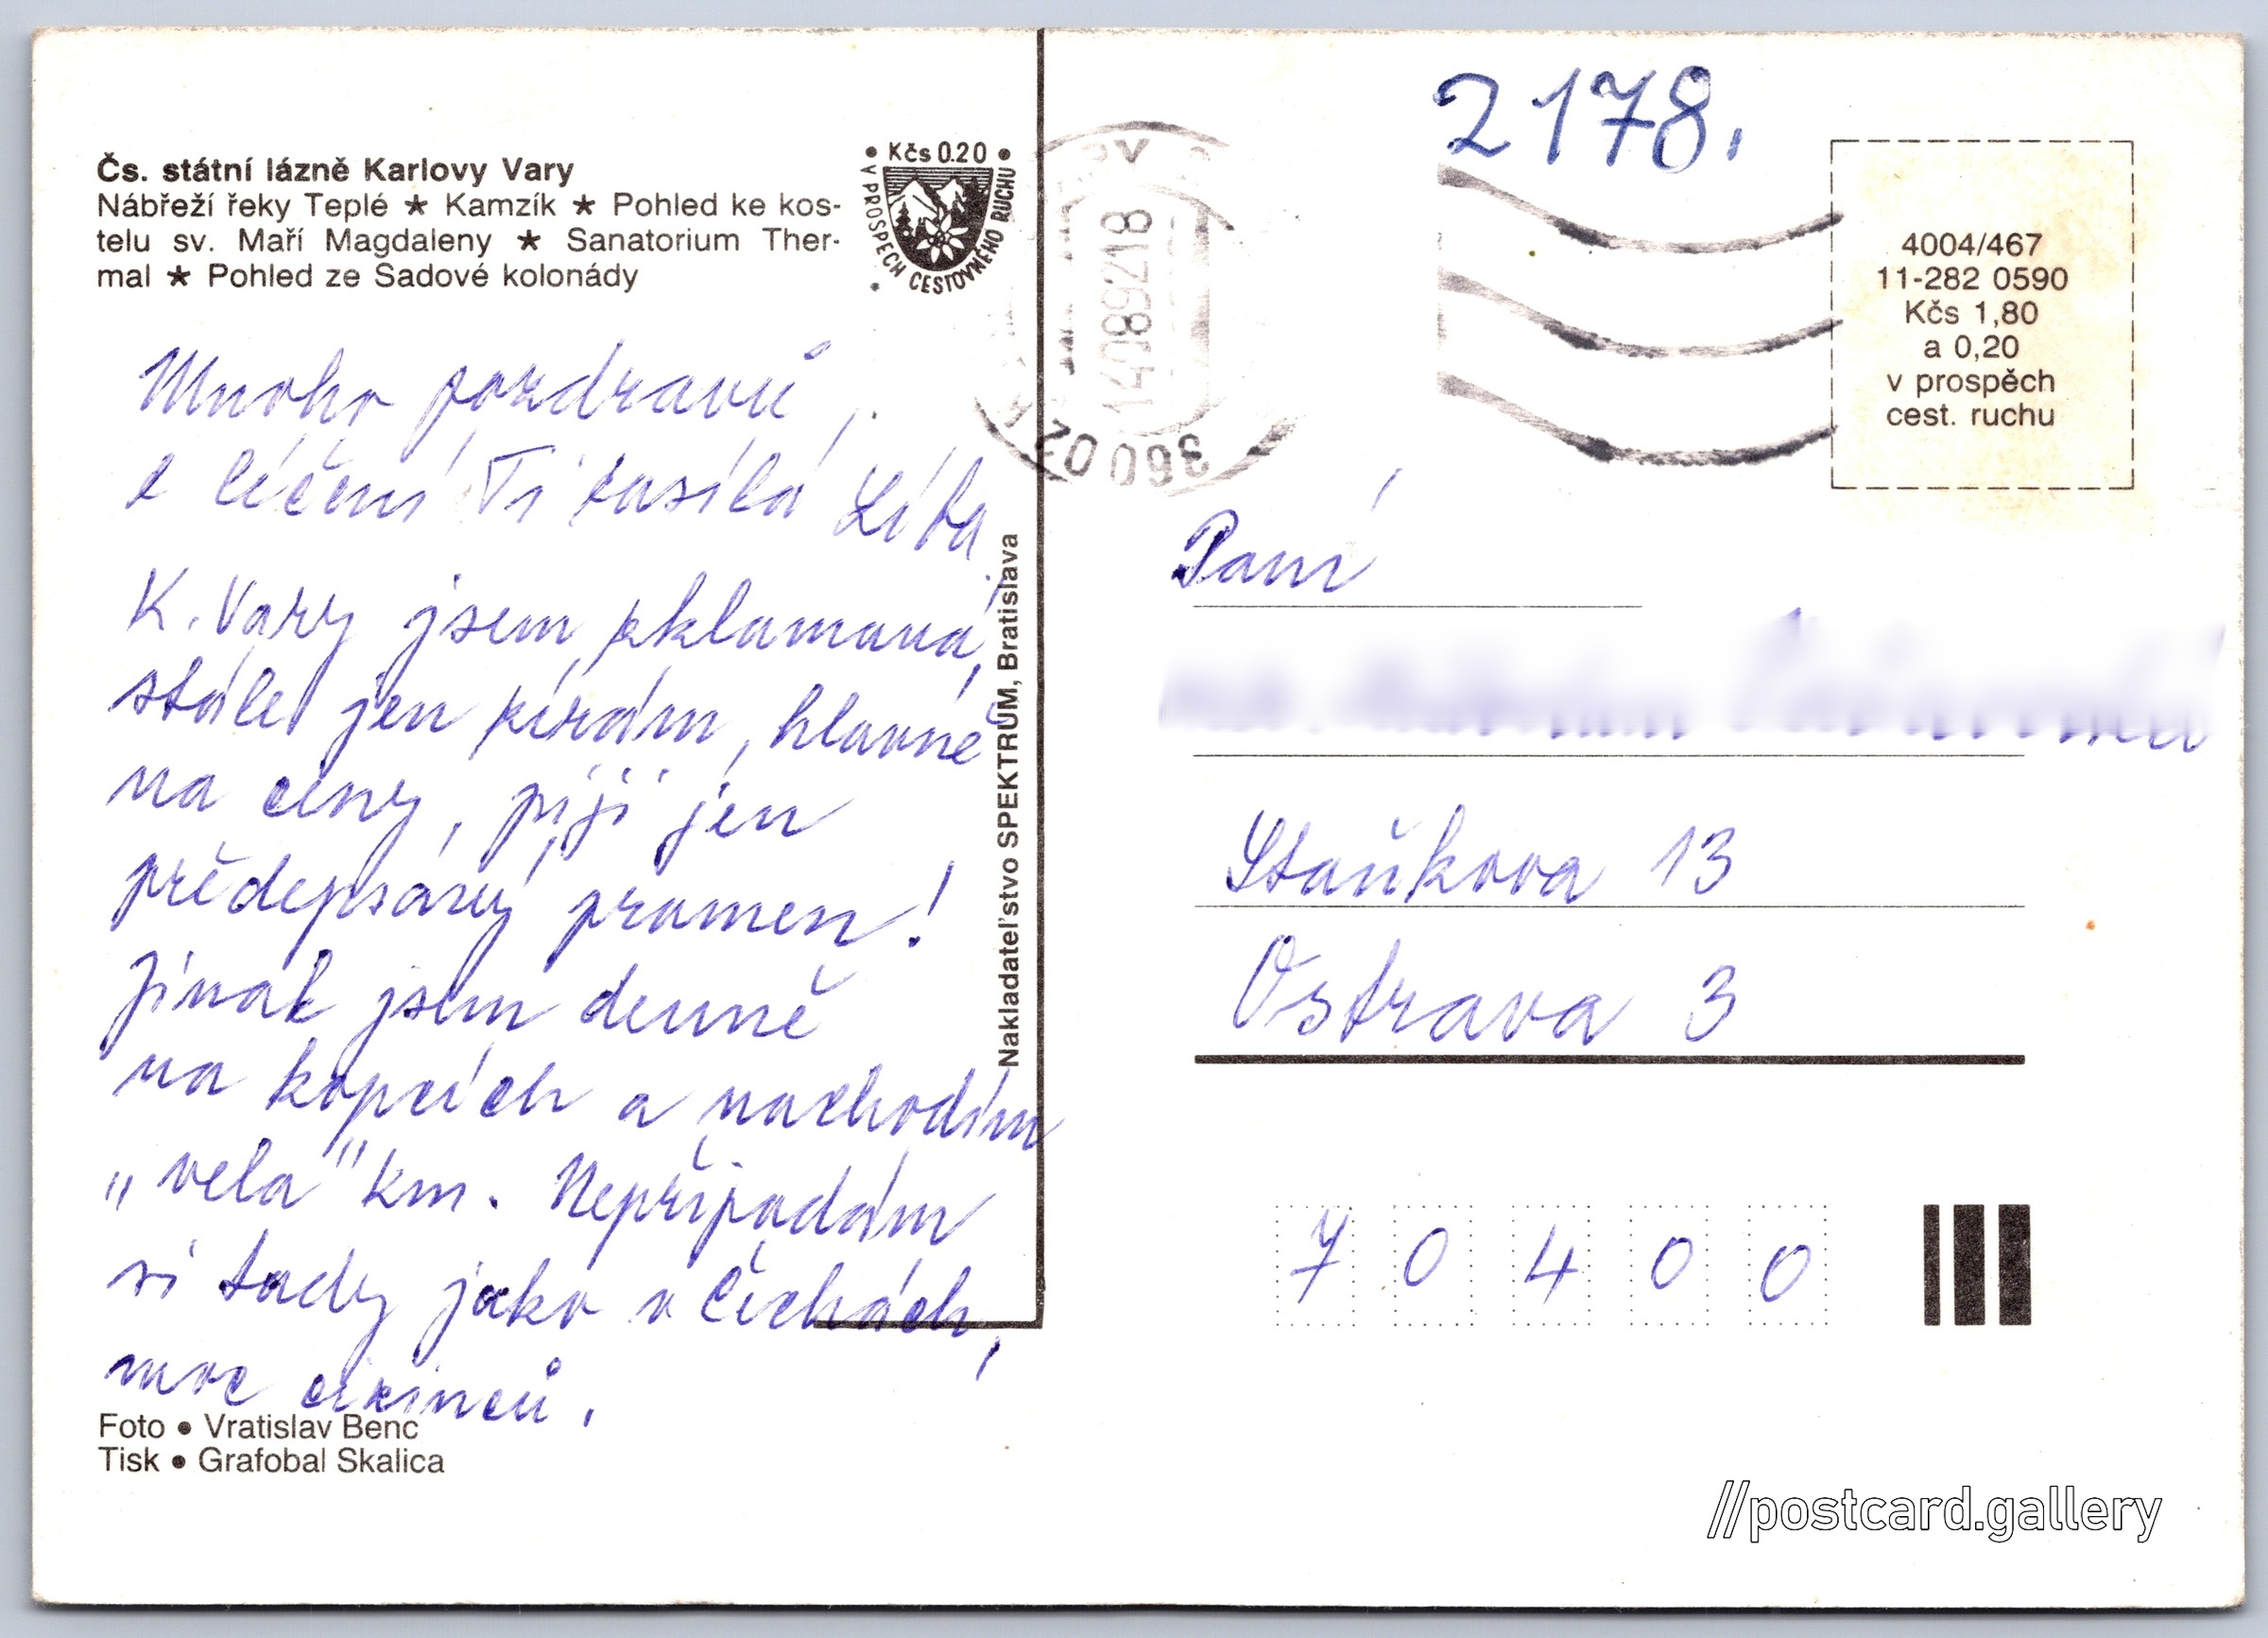 Čs. státní lázně Karlovy Vary
Nábřeží řeky Teplé ★ Kamzík ★ Pohled ke kos-
telu sv. Maří Magdaleny ★ Sanatorium Ther-
mal ★ Pohled ze Sadové kolonády
• Kčs 0.20 •
V PROSPĚCH CESTOVNÉHO RUCHU
Mnoho pozdravů,
z léčení Ti zasílá Líba.
K. Vary jsem zklamaná,
stále jen zírám, hlavně
na ceny, piji jen
předepsaný pramen!
Jinak jsem denně
na kopcích a nachodím
„vela" km. Nepřipadám
si tady jako v Čechách,
moc cizinců.
Foto • Vratislav Benc
Tisk • Grafobal Skalica
Nakladateľstvo SPEKTRUM, Bratislava
2178.
14.08.92 18
360 02
4004/467
11-282 0590
Kčs 1,80
a 0,20
v prospěch
cest. ruchu
Paní
Staňkova 13
Ostrava 3
70400
//postcard.gallery